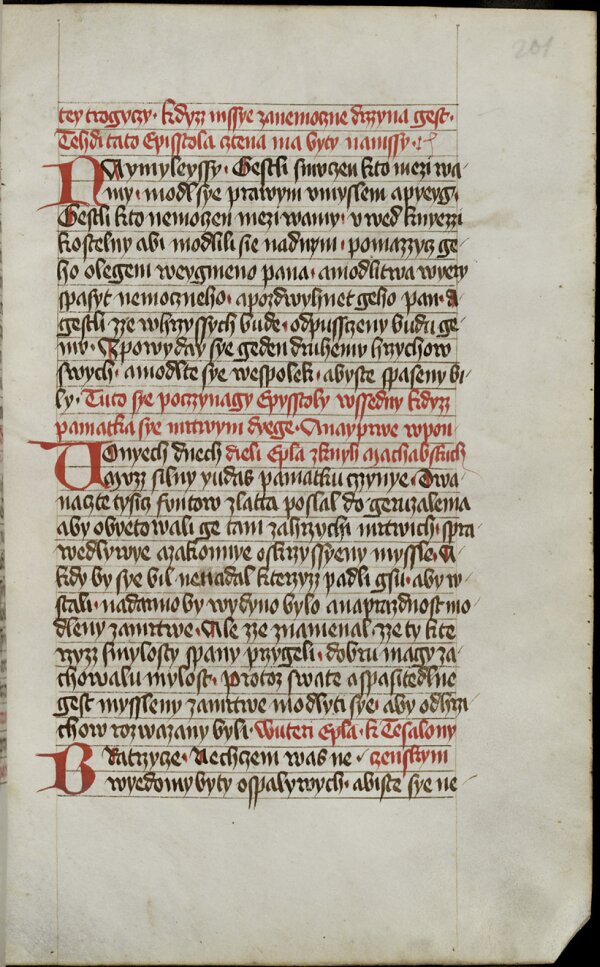 201
tey trogyczy · kdyzz mssye zanemoczne drzyna gest ·
Tehdi tato Episstola cztena ma byty namssy ·
Naymyleyssy · Gestli smuczen kto mezi wa
my · modl sye prawym vmyslem apyeyg ·
Gestli kto nemoczen mezi wamy · vwed knyezzi
kostelny abi modlili sie nadnym · pomazzycz ge
ho olegem weygmeno pana · amodlitwa wyery
spasyt nemoczneho · apozdwyhnet geho pan · A
gestli zze whrzyssych bude · odpussczeny budu ge
mv · Zpowyday sye geden druhemu hrzychow
swych · amodlte sye wespolek · abyste spaseny bi
ly · Tuto sye poczynagy Epysstoly wssedny kdyzz
pamatka sye mrtwym dyege · Anayprwe wpon
Wonyech dnech dieli Epla zknyh Machabskych
Muzz silny yudas pamatku czynye · Dwa
naczte tysicz funtow zlatta poslal do geruzalema
aby obyetowali ge tam zahrzychi mrtwich · spra
wedlywye azakonnye oskrzyssyeny myssle · A
kdy by sye bil nenadal kterzyzz padli gsu · aby w
stali · nadarmo by wydyno bylo anaprazdnost mo
dleny zamrtwe · Ale zze znamenal zze ty kte
rzyzz smylosty spany przygeli · dobru magy za
chowalu mylost · Protoz swate aspasitedlne
gest myssleny zamrtwe modlyti sye · aby odhrzi
chow rozwazany byli · Wutery Epla · k Tesalony
Bratrzycze · Nechczem was ne · czenskym
wyedomy byty ospalywych · abiste sye ne